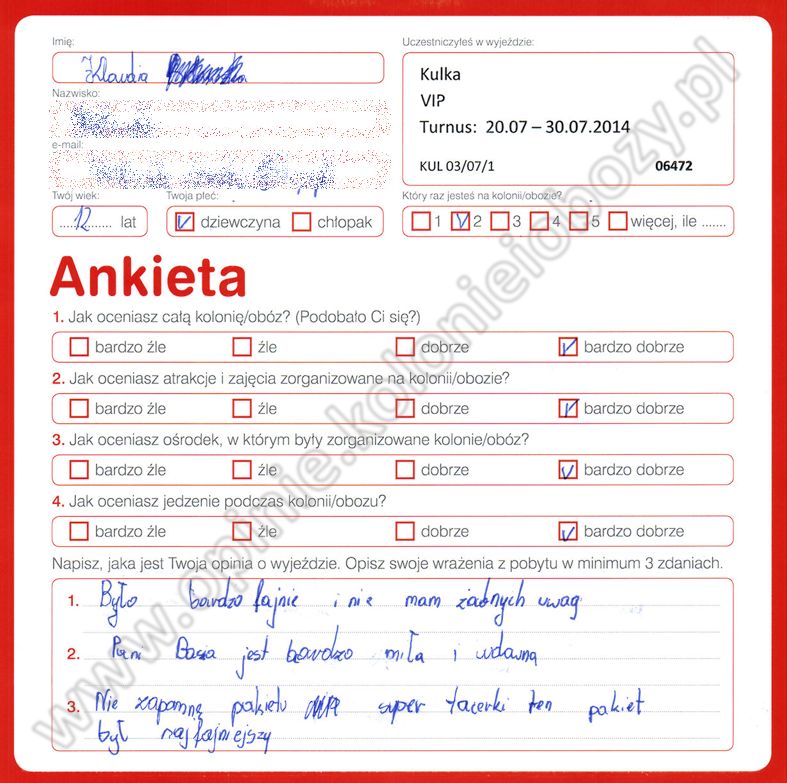 Imię:
Uczestniczyłeś w wyjeździe:
Klaudia
Kulka
VIP
Turnus: 20.07 – 30.07.2014
KUL 03/07/1 06472
Nazwisko:
e-mail:
Twój wiek:
Twoja płeć:
Który raz jesteś na kolonii/obozie?
12 lat
dziewczyna chłopak
1 2 3 4 5 więcej, ile .......
Ankieta
1. Jak oceniasz całą kolonię/obóz? (Podobało Ci się?)
bardzo źle źle dobrze bardzo dobrze
2. Jak oceniasz atrakcje i zajęcia zorganizowane na kolonii/obozie?
bardzo źle źle dobrze bardzo dobrze
3. Jak oceniasz ośrodek, w którym były zorganizowane kolonie/obóz?
bardzo źle źle dobrze bardzo dobrze
4. Jak oceniasz jedzenie podczas kolonii/obozu?
bardzo źle źle dobrze bardzo dobrze
Napisz, jaka jest Twoja opinia o wyjeździe. Opisz swoje wrażenia z pobytu w minimum 3 zdaniach.
1. Było bardzo fajnie i nie mam żadnych uwag
2. Pani Basia jest bardzo miła i
3. Nie zapomnę pakietu super ten pakiet
był najfajniejszy
www.opinie.kolonieiobozy.pl